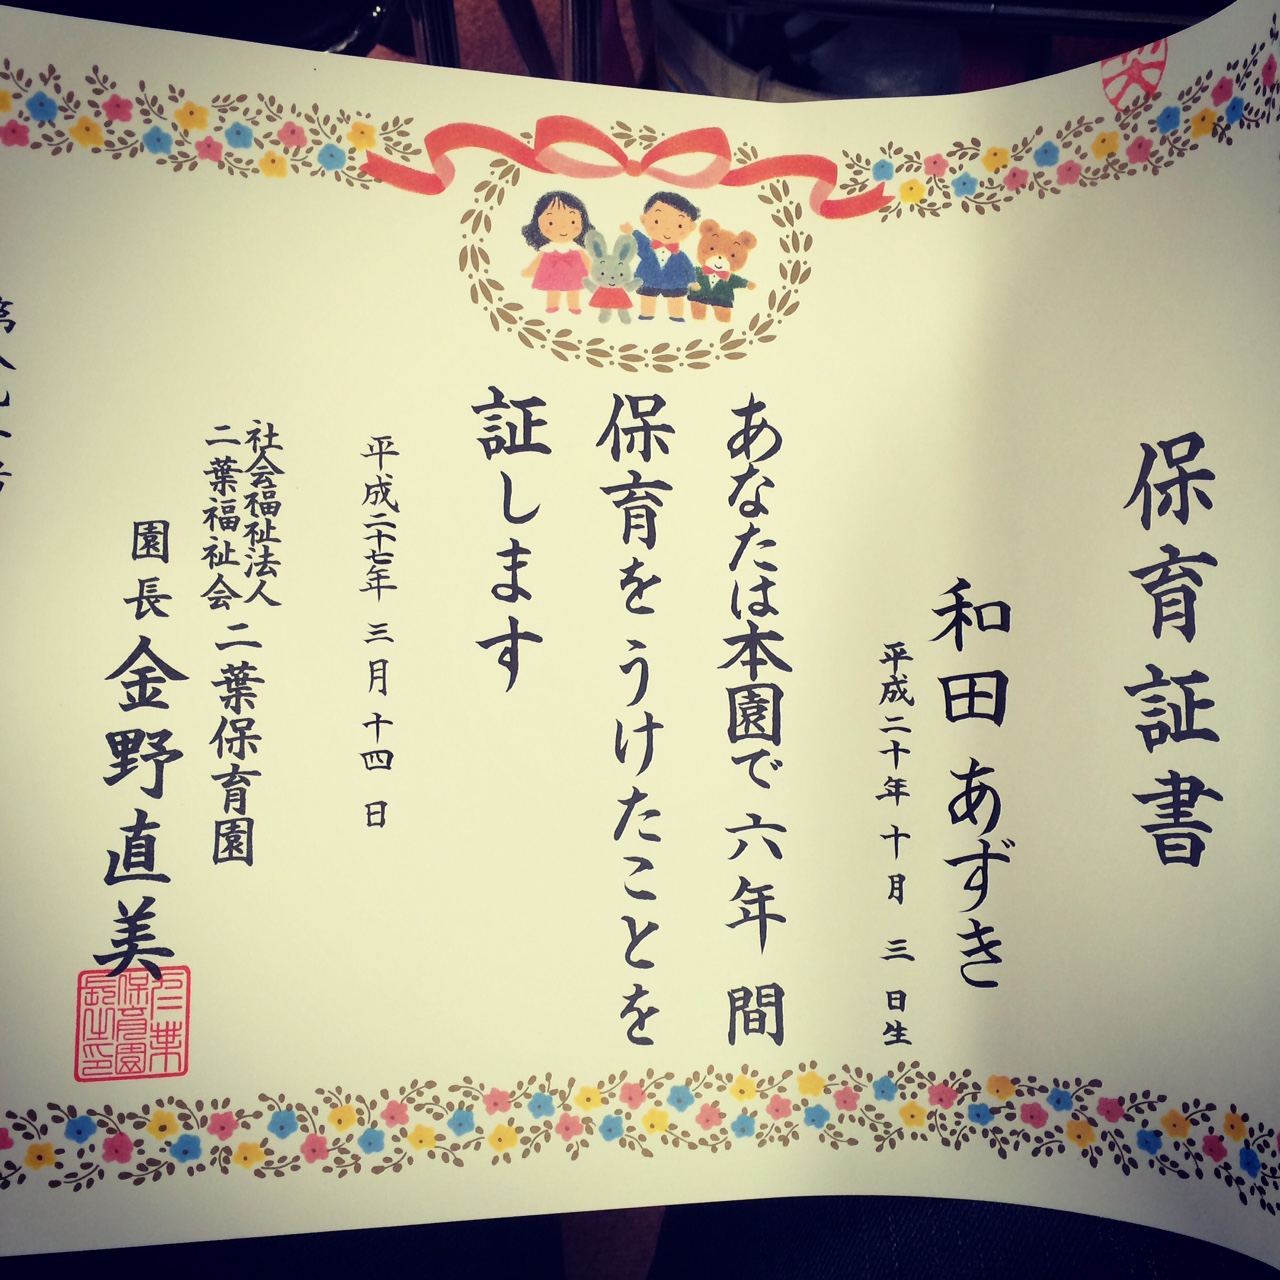 保育証書
和田 あずき
平成二十年 十月 三 日生
あなたは本園で 六年 間
保育を うけたことを
証します
平成二十七年 三月 十四 日
社会福祉法人
二葉福祉会
二葉保育園
園長 金野直美
二葉
保育園
長之印